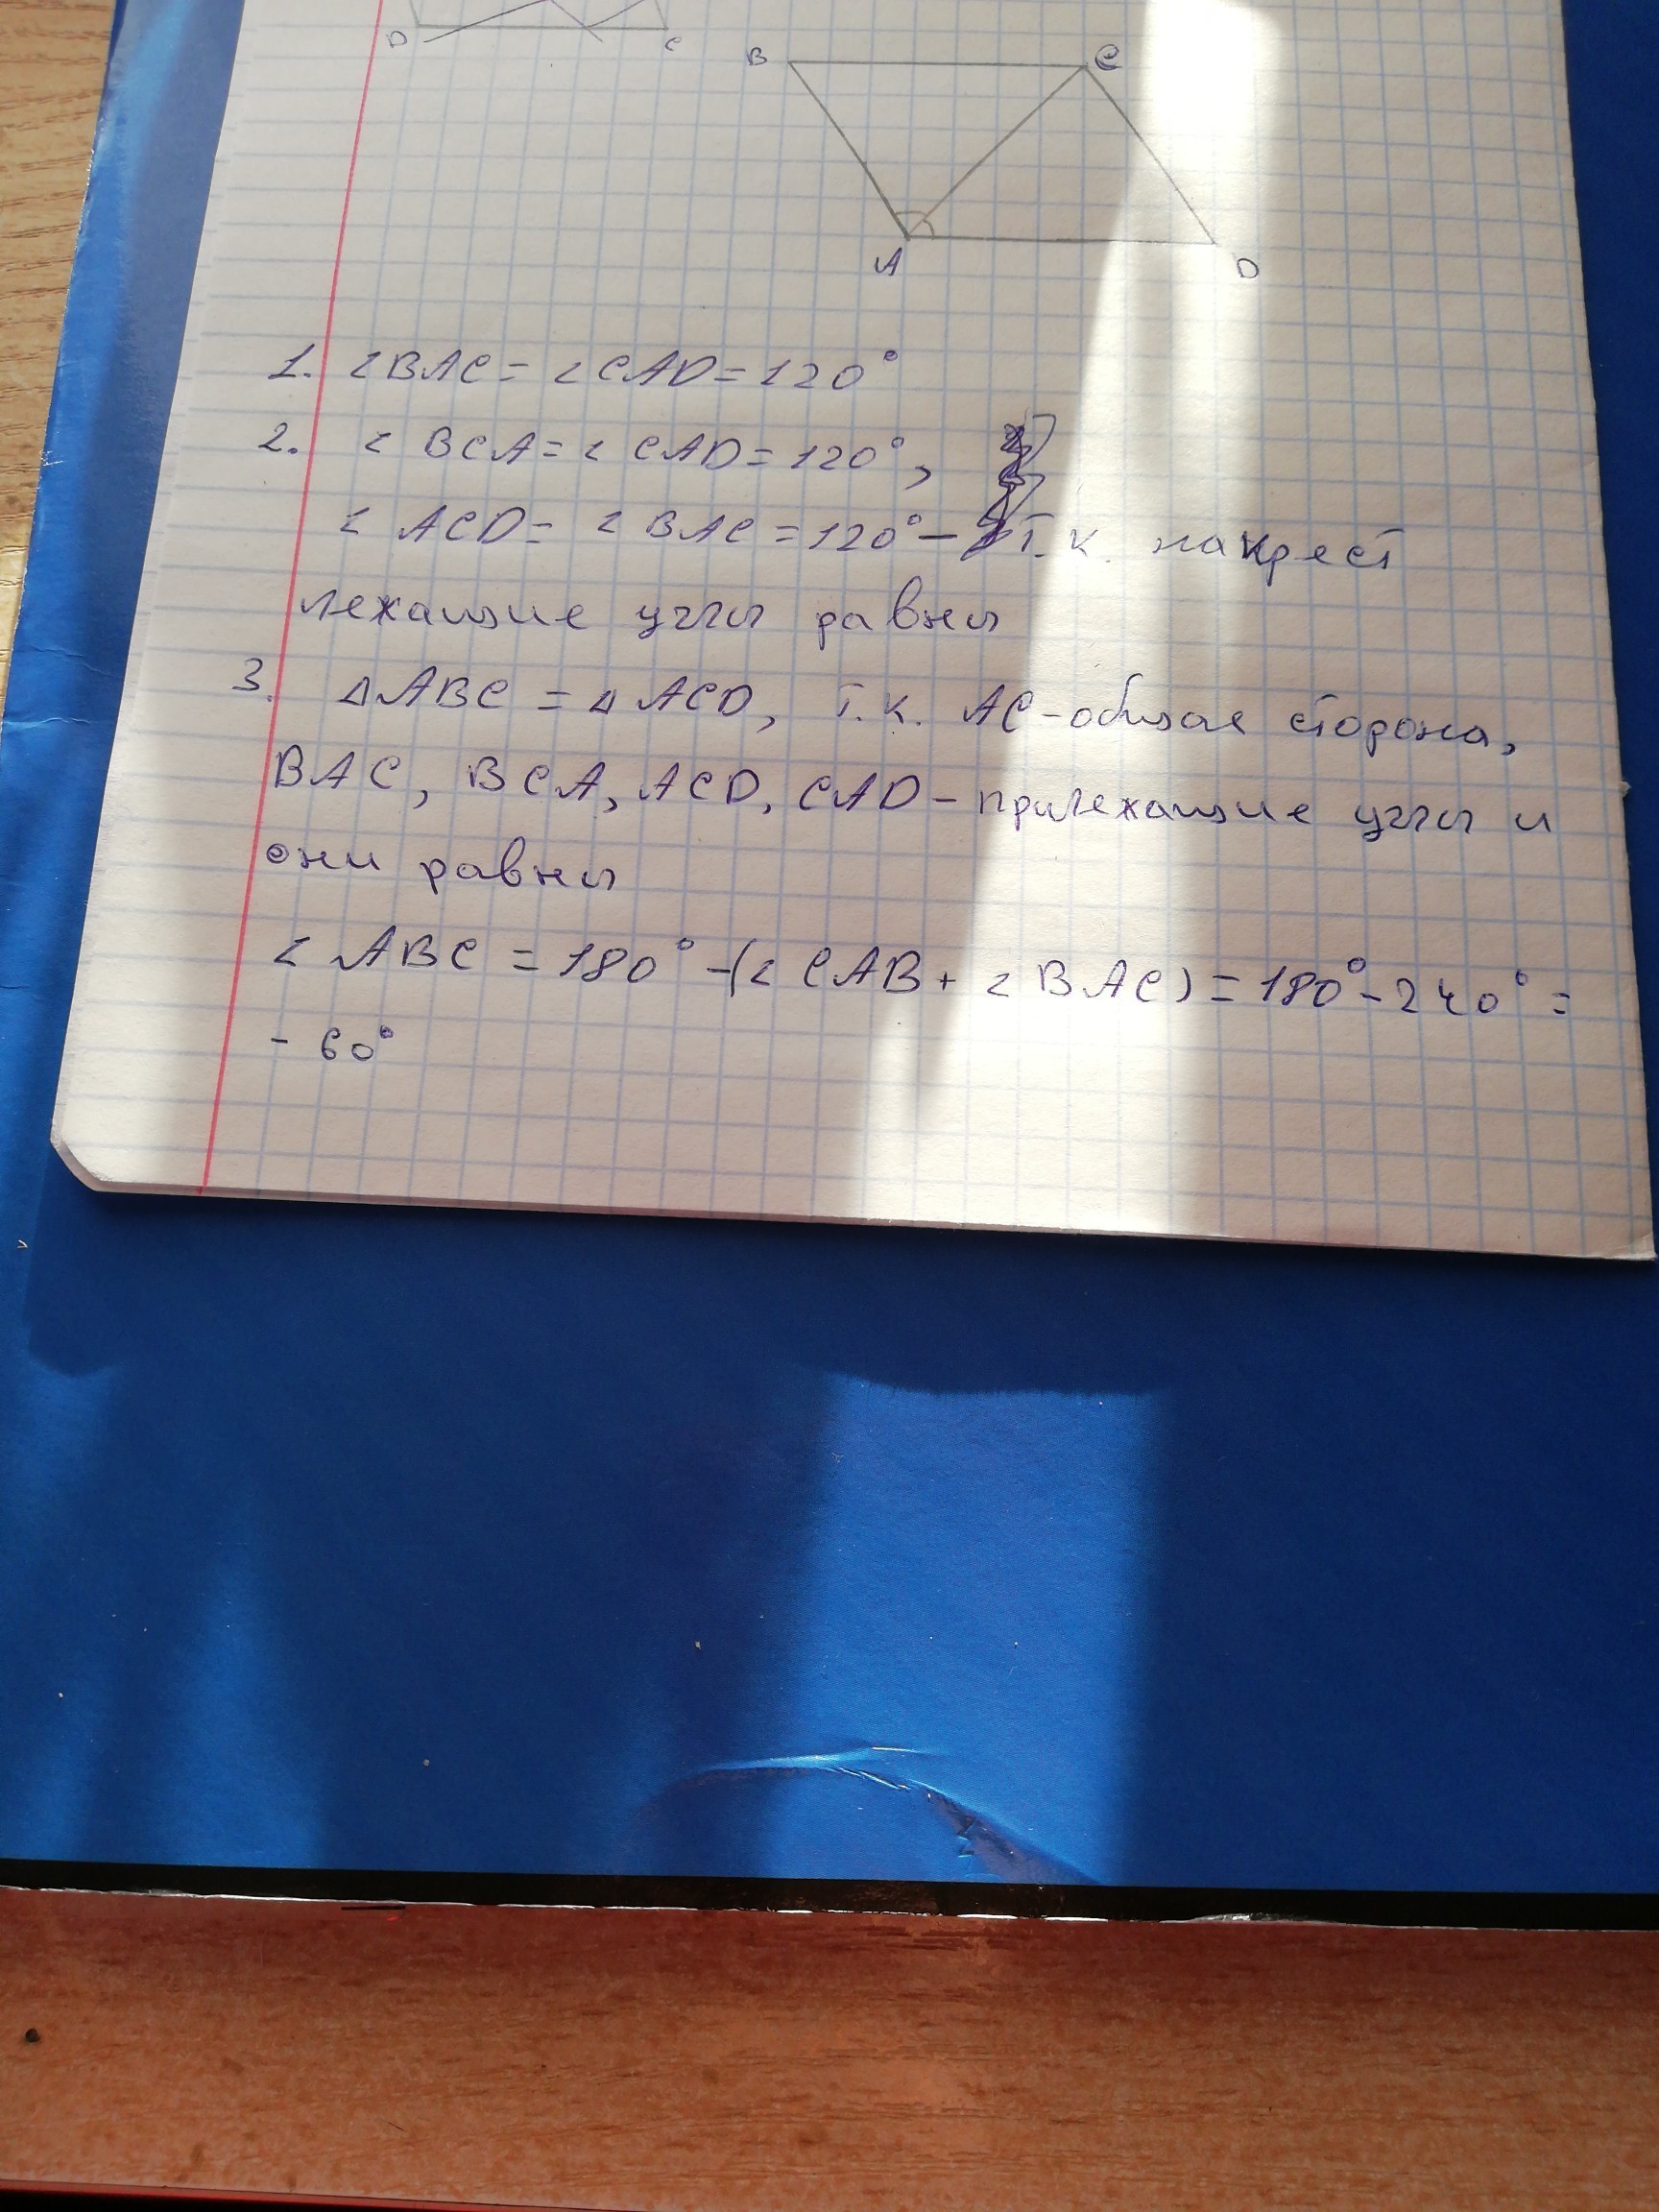 D C
B C
A D
1. ∠BAC = ∠CAD = 120°
2. ∠ BCA = ∠ CAD = 120°,
∠ ACD = ∠ BAC = 120° - т.к. накрест
лежащие углы равны
3. △ABC = △ACD, т.к. AC - общая сторона,
BAC, BCA, ACD, CAD - прилежащие углы и
они равны
∠ ABC = 180° - (∠ CAB + ∠ BAC) = 180° - 240° =
- 60°